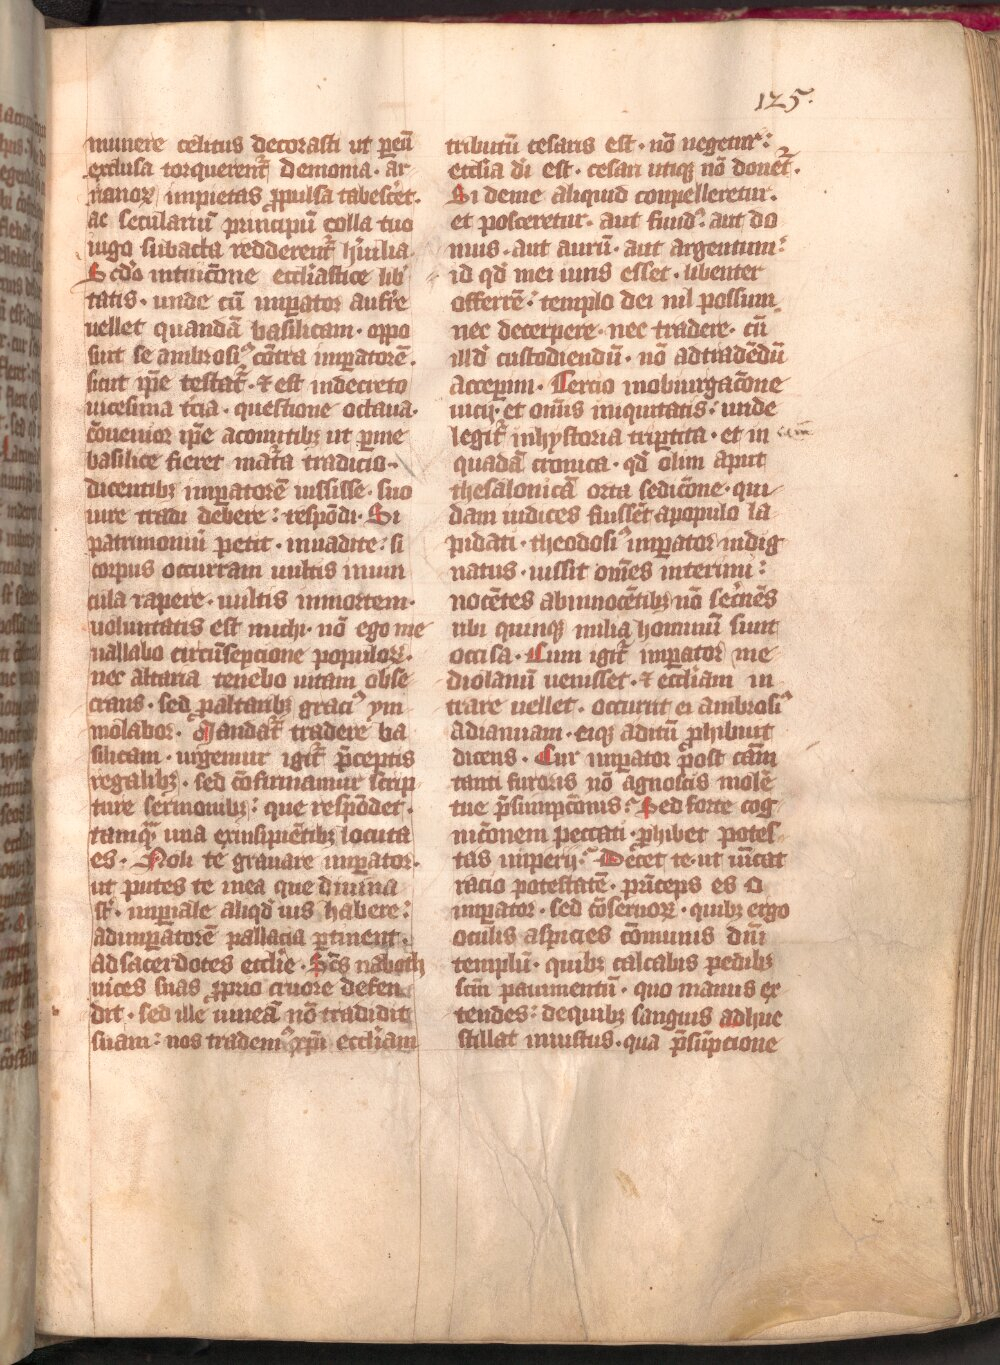 125.
munere celitus decorasti ut p̱ eū
exclusa torquerent᷑ demonia · ar
rianoꝝ impietas ꝓpulsa tabescēt ·
ac seculariū principiū colla tuo
iugo subacta redderent᷑ hūilia ·
Scdo intuicōne eccliastice lib̾
tatis · unde cū imꝑator aufr̄e
uellet quandā basilicam · oppo
suit se ambrosiꝰ cōtra imꝑatorē ·
sicut ip̄e testat᷑ · ⁊ est indecreto
uicesima tcīa · questione octaua ·
Cōuenior ip̄e acomitibꝫ ut ꝑ me
basilice fieret mat̾a tradicio
dicentibꝫ imꝑatorē iussisse · suo
iure tradi debere : respōdi · Si
patrimoniū petit · inuadite : si
corpus occurram uultis inuin
cula rapere · uultis inmortem ·
uoluntatis est michi · nō ego me
uallabo circūsepcione populoꝝ ·
nec altaria tenebo uitam obse
crans · sed ꝓ altaribꝫ graciꝰ ym
molabor · Mandat᷑ tradere ba
silicam · urgemur igit᷑ p̄ceptis
regalibꝫ · sed cōfirmamur scrip
ture sermonibꝫ : que respōdet ·
tamqͣ una exinsipiētibꝫ locuta
es · Noli te grauare imꝑator ·
ut putes te inea que diuina
st̄ · imꝑiale aliqd ius habere :
adimꝑatorē pallacia ꝑtinent ·
ad sacerdotes ecclīe · Scs̄ naboth
uices suas ꝓprio cruore defen
dit · sed ille uineā nō tradidit
suam : nos trademꝰ xp̄i eccliam
tributū cesaris est · nō negetur :
ecclīa dī est · cesari utiqꝫ nō donet᷑ ·
Si deme aliquid compelleretur ·
et posceretur · aut fundꝰ · aut do
mus · aut aurū · aut argentum :
id qd̄ mei iuris esset · libenter
offerrē : templo dei nil possum
nec decerpere · nec tradere · cū
illd̄ custodiendū · nō ad tradēdū
accepim · Tercio inobiurgacōne
uicij · et om̄is iniquitatis : unde
legit᷑ inhystoria tripertita · et in
quadā cronica · qd̄ olim aput
thesalonicā orta sedicōne · qui
dam iudices fuissēt apopulo la
pidati · theodosiꝰ imꝑator indig
natus · iussit om̄es interimi :
nocētes abinnocētibꝫ nō secn̄ēs
ubi quinqꝫ milia hominū sunt
occisa · Cum igit᷑ imꝑator me
diolanū uenisset · ⁊ eccliam in
trare uellet · occurrit ei ambrosiꝰ
adianuam · eiqꝫ aditū ꝓhibuit
dicens · Cur imꝑator post cām
tanti furoris nō agnoscis molē
tue p̄sumpcōnis : Sed forte cog
nicōnem peccati · ꝓhibet potes
tas imperij : Decet te · ut uīcat
racio potestatē · prīceps es o
imꝑator · sed cōseruoꝝ · quibꝫ ergo
oculis aspicies cōmunis dn̄i
templū · quibꝫ calcabis pedibꝫ
scm̄ pauimentū · quo manus ex
tendes : dequibꝫ sanguis adhuc
stillat iniustus · qua p̄sūpcione